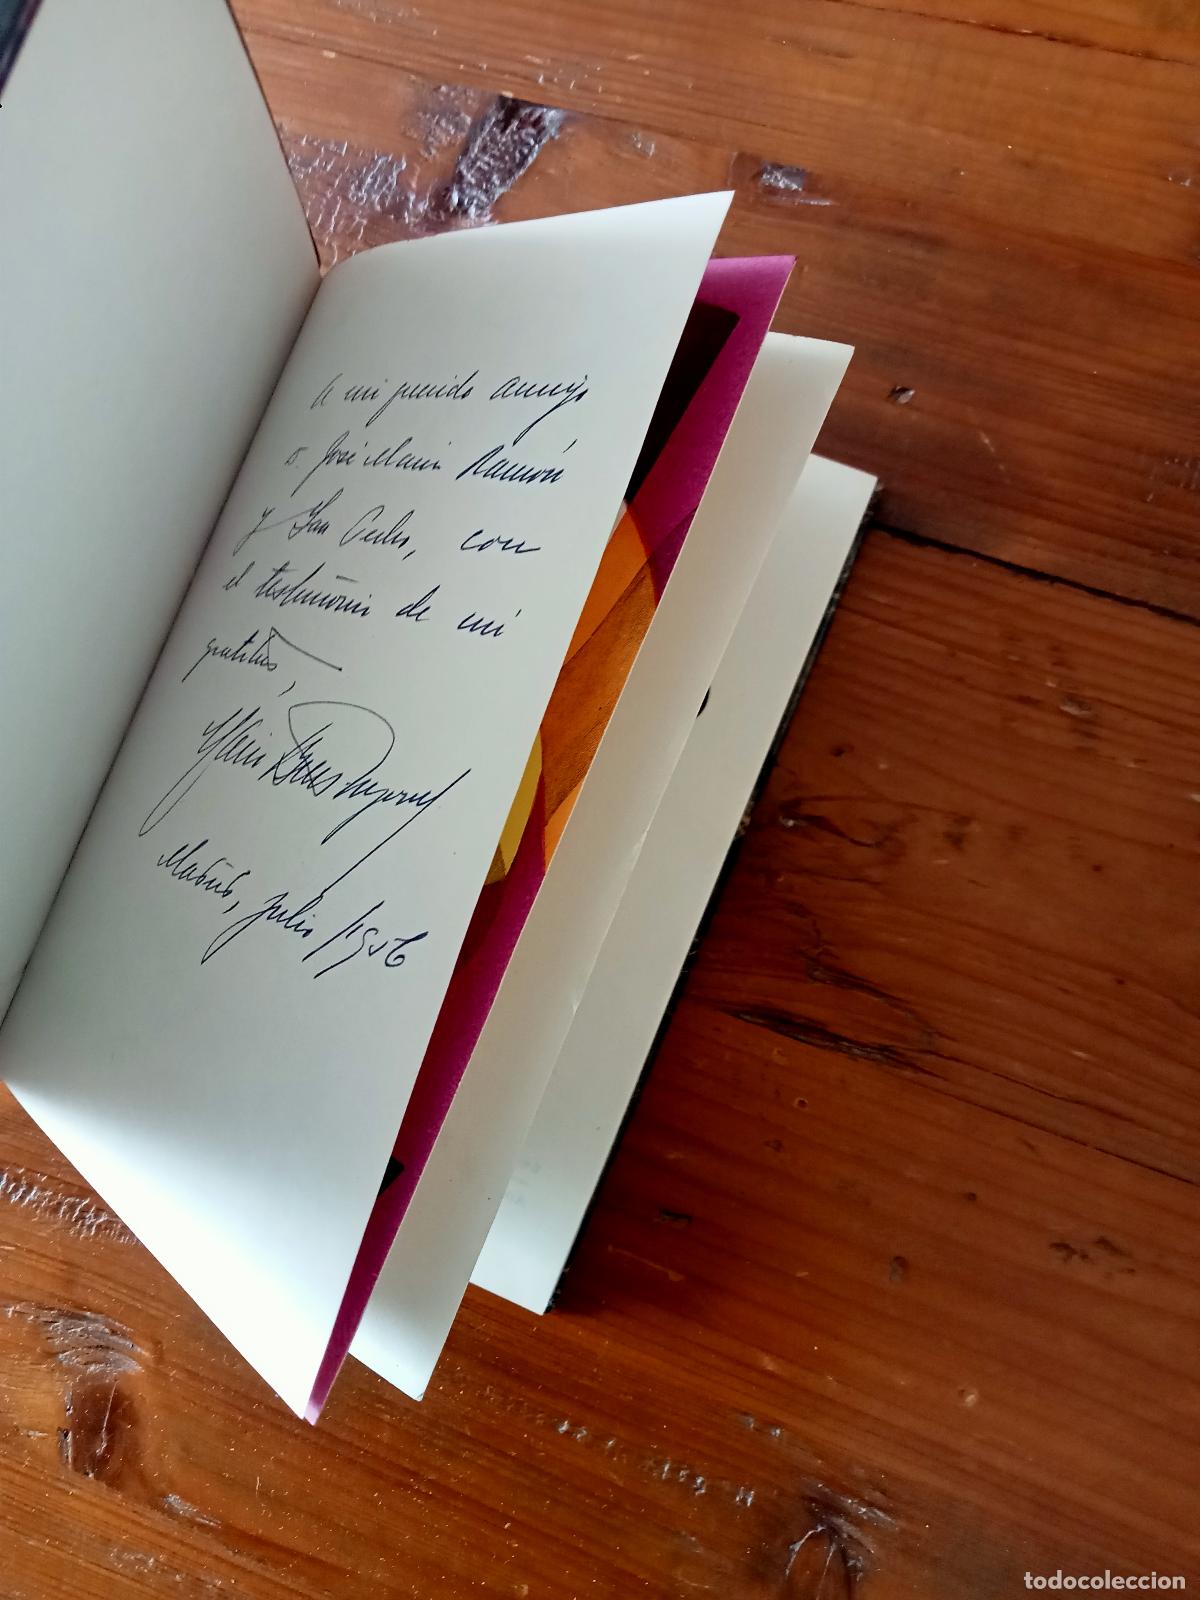 A mi querido amigo
D. José María Ramón
y San Pedro, con
el testimonio de mi
gratitud,
Madrid, julio/1956
todocoleccion